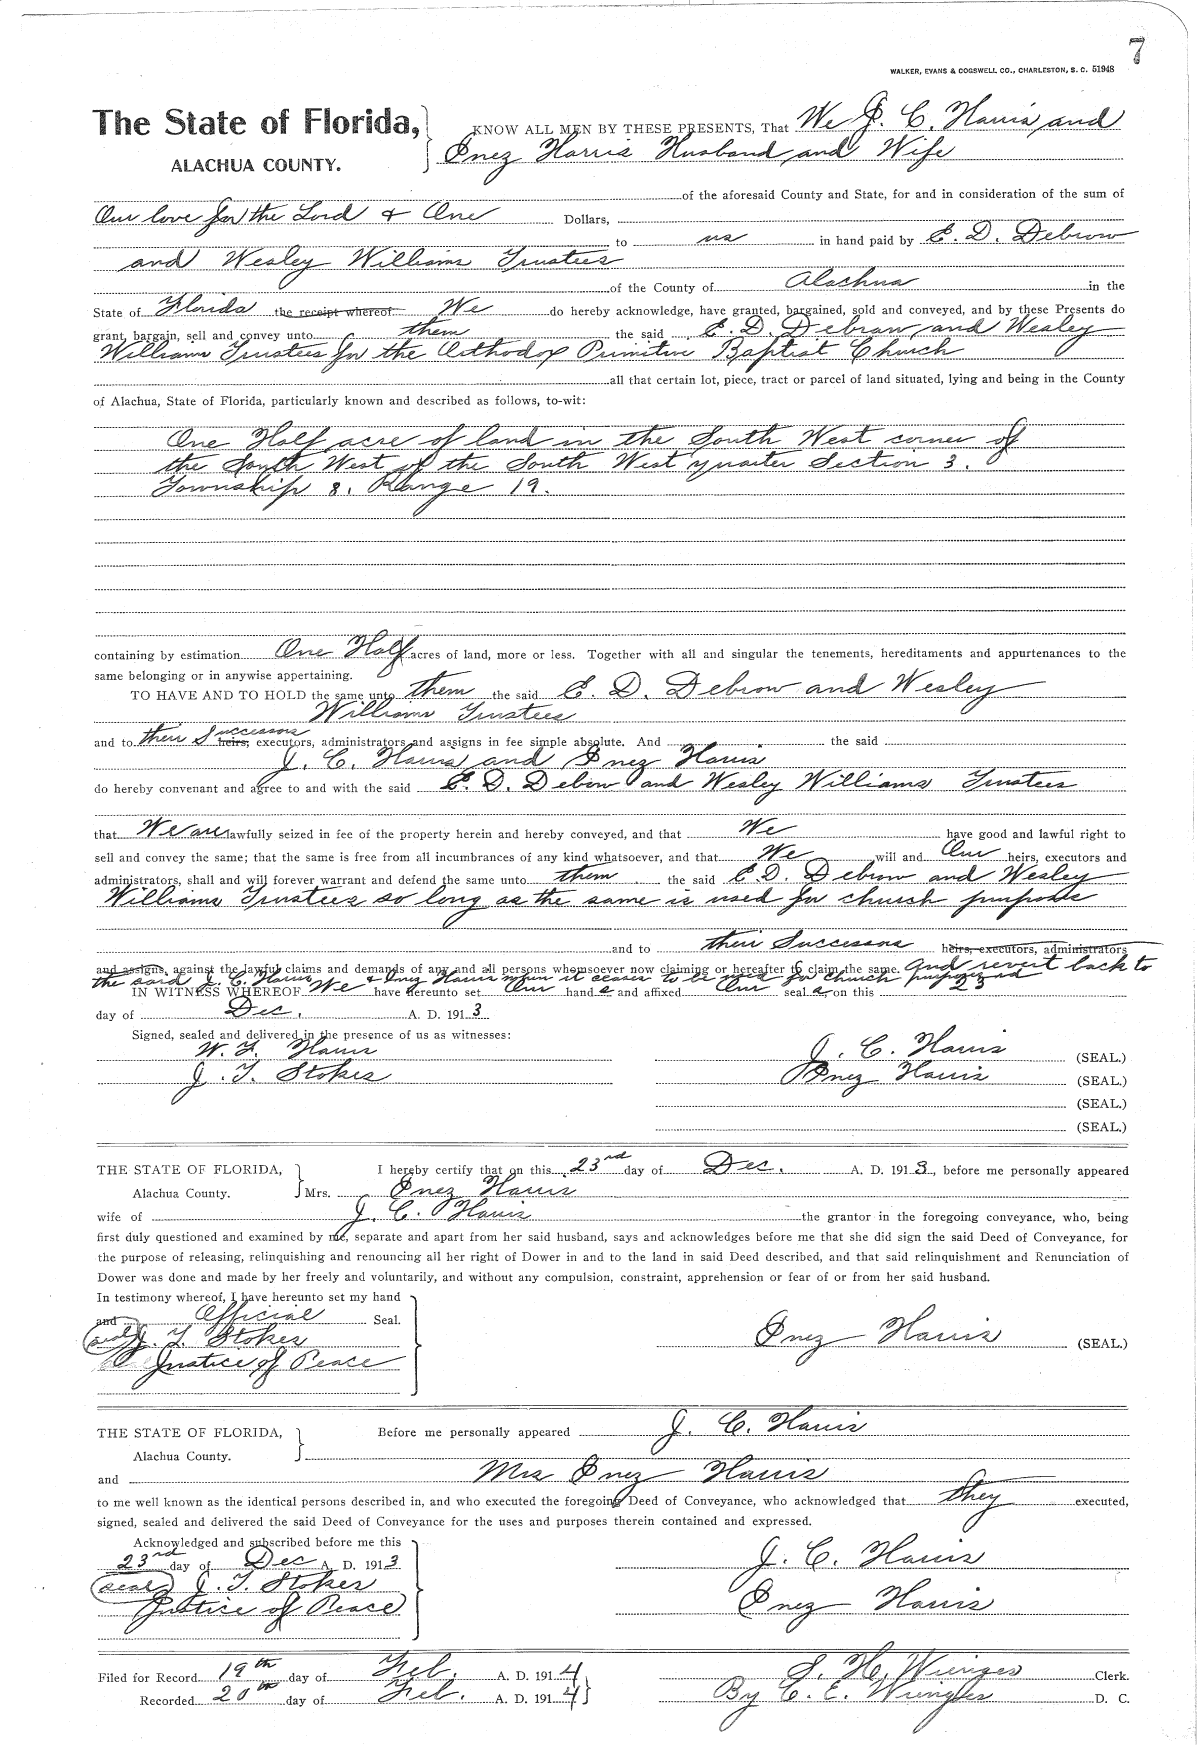 7
WALKER, EVANS & COGSWELL CO., CHARLESTON, S. C. 51948
The State of Florida, KNOW ALL MEN BY THESE PRESENTS, That We J. C. Harris and
ALACHUA COUNTY. Inez Harris Husband and Wife
of the aforesaid County and State, for and in consideration of the sum of
Our love for the Lord & One Dollars,
to us in hand paid by E. D. Debrow
and Wesley Williams Trustees
of the County of Alachua in the
State of Florida the receipt whereof We do hereby acknowledge, have granted, bargained, sold and conveyed, and by these Presents do
grant, bargain, sell and convey unto them the said E. D. Debrow and Wesley
Williams Trustees for the Orthodox Primitive Baptist Church
all that certain lot, piece, tract or parcel of land situated, lying and being in the County
of Alachua, State of Florida, particularly known and described as follows, to-wit:
One Half acre of land in the South West corner of
the South West of the South West quarter Section 3.
Township 8. Range 19.
containing by estimation One Half acres of land, more or less. Together with all and singular the tenements, hereditaments and appurtenances to the
same belonging or in anywise appertaining.
TO HAVE AND TO HOLD the same unto them the said E. D. Debrow and Wesley
Williams Trustees
and to their Successors heirs, executors, administrators and assigns in fee simple absolute. And the said
J. C. Harris and Inez Harris
do hereby convenant and agree to and with the said E. D. Debow and Wesley Williams Trustees
that We are lawfully seized in fee of the property herein and hereby conveyed, and that We have good and lawful right to
sell and convey the same; that the same is free from all incumbrances of any kind whatsoever, and that We will and Our heirs, executors and
administrators, shall and will forever warrant and defend the same unto them the said E. D. Debrow and Wesley
Williams Trustees so long as the same is used for church purposes
and to their Successors heirs, executors, administrators
and assigns, against the lawful claims and demands of any and all persons whomsoever now claiming or hereafter to claim the same. and revert back to
the said J. C. Harris & Inez Harris when it ceases to be used for church purposes
IN WITNESS WHEREOF We have hereunto set Our hands and affixed Our seals on this 23rd
day of Dec. A. D. 1913
Signed, sealed and delivered in the presence of us as witnesses:
W. F. Harris J. C. Harris (SEAL.)
J. T. Stokes Inez Harris (SEAL.)
(SEAL.)
(SEAL.)
THE STATE OF FLORIDA, I hereby certify that on this 23rd day of Dec. A. D. 1913, before me personally appeared
Alachua County. Mrs. Inez Harris
wife of J. C. Harris the grantor in the foregoing conveyance, who, being
first duly questioned and examined by me, separate and apart from her said husband, says and acknowledges before me that she did sign the said Deed of Conveyance, for
the purpose of releasing, relinquishing and renouncing all her right of Dower in and to the land in said Deed described, and that said relinquishment and Renunciation of
Dower was done and made by her freely and voluntarily, and without any compulsion, constraint, apprehension or fear of or from her said husband.
In testimony whereof, I have hereunto set my hand
and Official Seal.
seal J. T. Stokes Inez Harris (SEAL.)
Justice of Peace
THE STATE OF FLORIDA, Before me personally appeared J. C. Harris
Alachua County.
and Mrs Inez Harris
to me well known as the identical persons described in, and who executed the foregoing Deed of Conveyance, who acknowledged that they executed,
signed, sealed and delivered the said Deed of Conveyance for the uses and purposes therein contained and expressed.
Acknowledged and subscribed before me this
23rd day of Dec A. D. 1913 J. C. Harris
seal J. T. Stokes
Justice of Peace Inez Harris
Filed for Record 19th day of Feb. A. D. 1914 S. H. Wienges Clerk.
Recorded 20th day of Feb. A. D. 1914 By C. E. Wienges D. C.